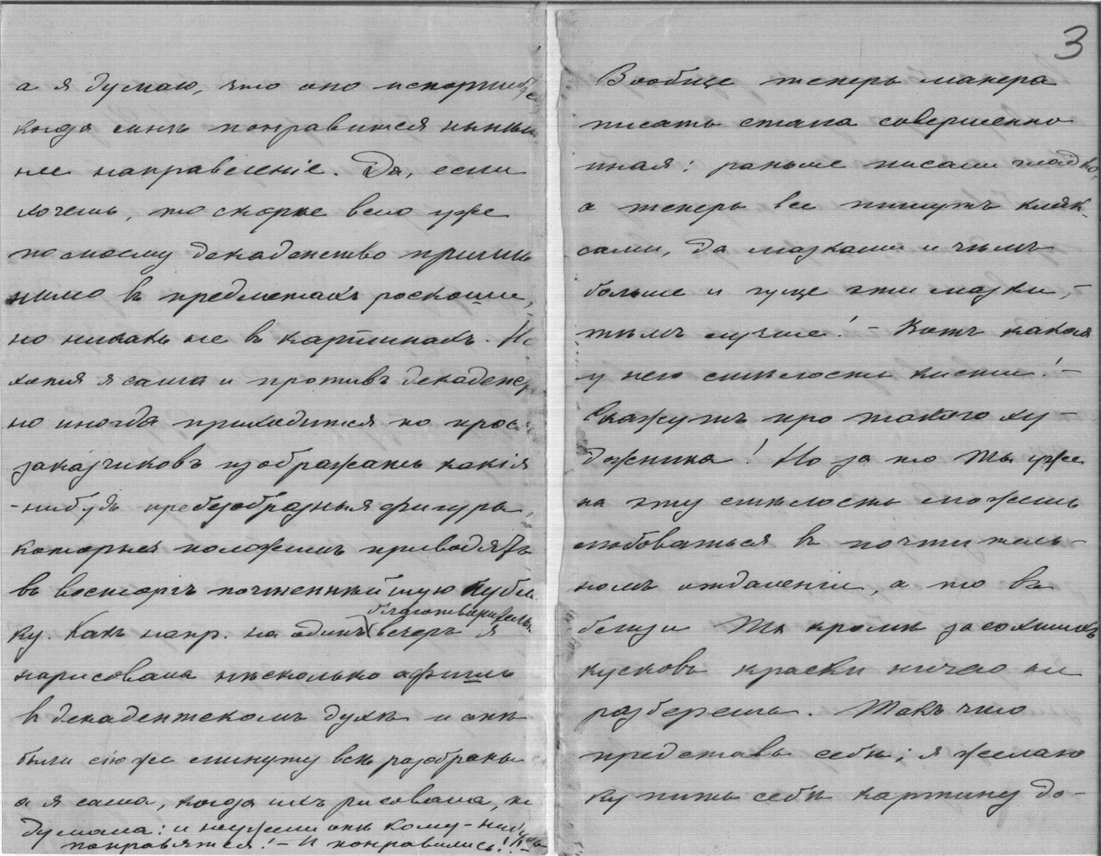 а я думаю, что оно испортится
когда мнѣ понравится нынѣш
нее направленіе. Да, если
хочешь, то скорѣе всего уже
по моему декадентство примѣ
нимо въ предметахъ роскоши,
но никакъ не въ картинахъ. Но
хотя я сама и противъ декадент
но иногда приходится по прос
заказчиковъ изображать какія
-нибудь пребезобразныя фигуры,
которыя положимъ приводятъ
въ восторгъ почтеннѣйшую публи
ку. Какъ напр. на одинъ благотворительн вечеръ я
нарисовала нѣсколько афишъ
въ декадентскомъ духѣ и онѣ
были сію же минуту всѣ разобраны
а я сама, когда ихъ рисовала, не
думала: и неужели онѣ кому-нибудь
понравятся! – И понравились!
3
Вообще теперь манера
писать стала совершенно
иная: раньше писали гладко,
а теперь всѣ пишутъ кляк-
сами, да мазками и чѣмъ
больше и гуще эти мазки, –
тѣмъ лучше! – Вотъ какая
у него смѣлость кисти! –
Скажутъ про такого ху-
дожника! Но за то ты уже
на эту смѣлость можешь
любоваться въ почтитель-
номъ отдаленіи, а то въ
близи ты кромѣ засохшихъ
кусковъ краски ничего не
разберешь. Такъ что
представь себѣ; я желаю
купить себѣ картину до-